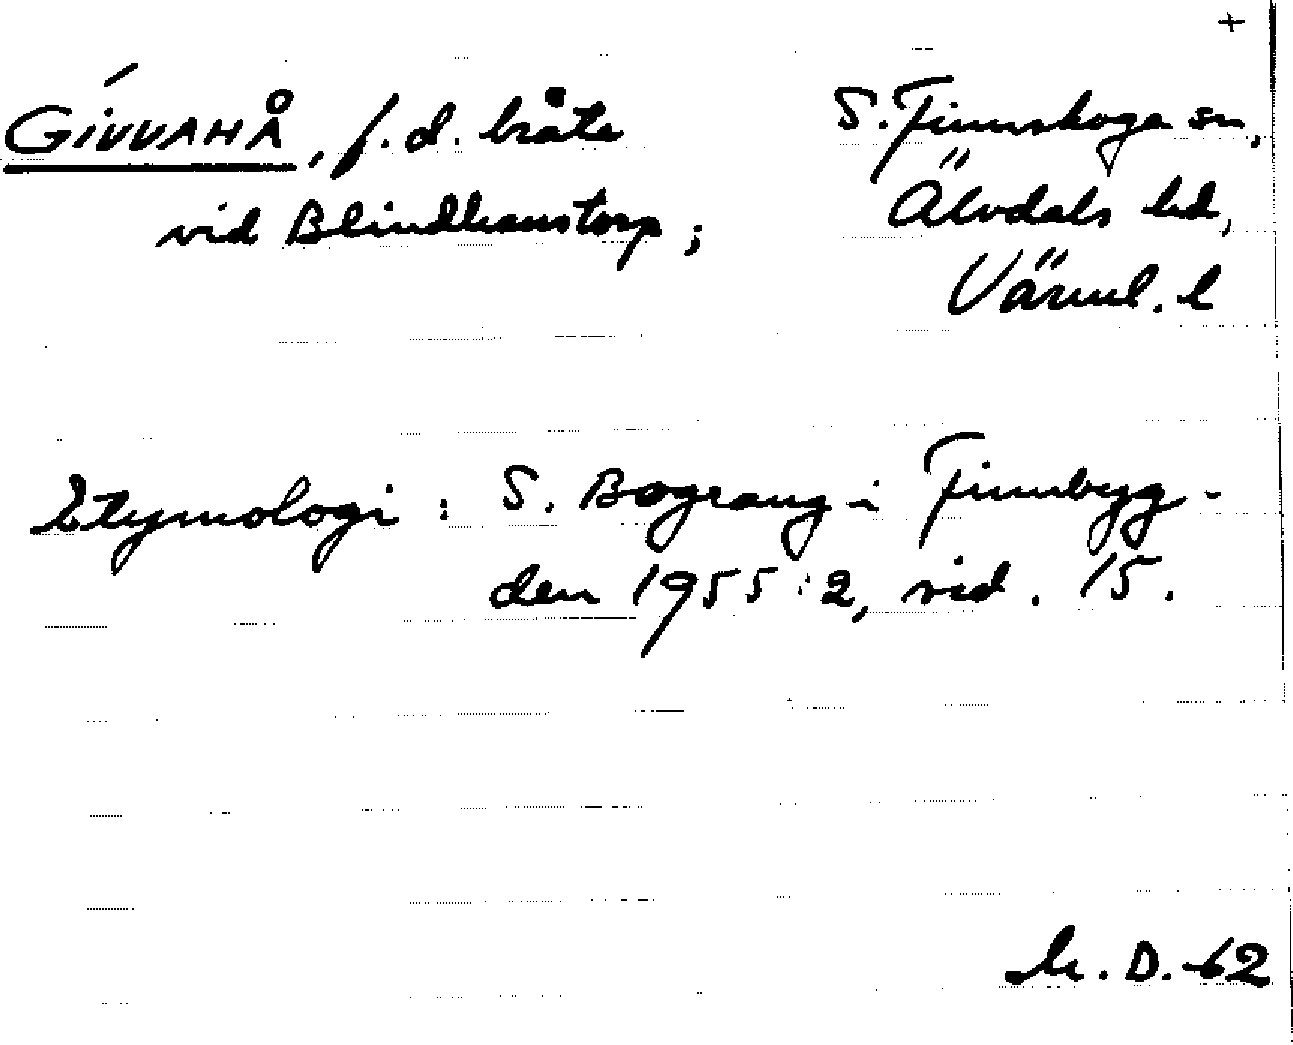 +
GÍVVAHÅ, f.d. bråte
vid Blindhanstorp;
S. Finnskoga sn,
Älvdals hd,
Värml. l
Etymologi: S. Bograng i Finnbyg-
den 1955:2, sid. 15.
M. D. -62